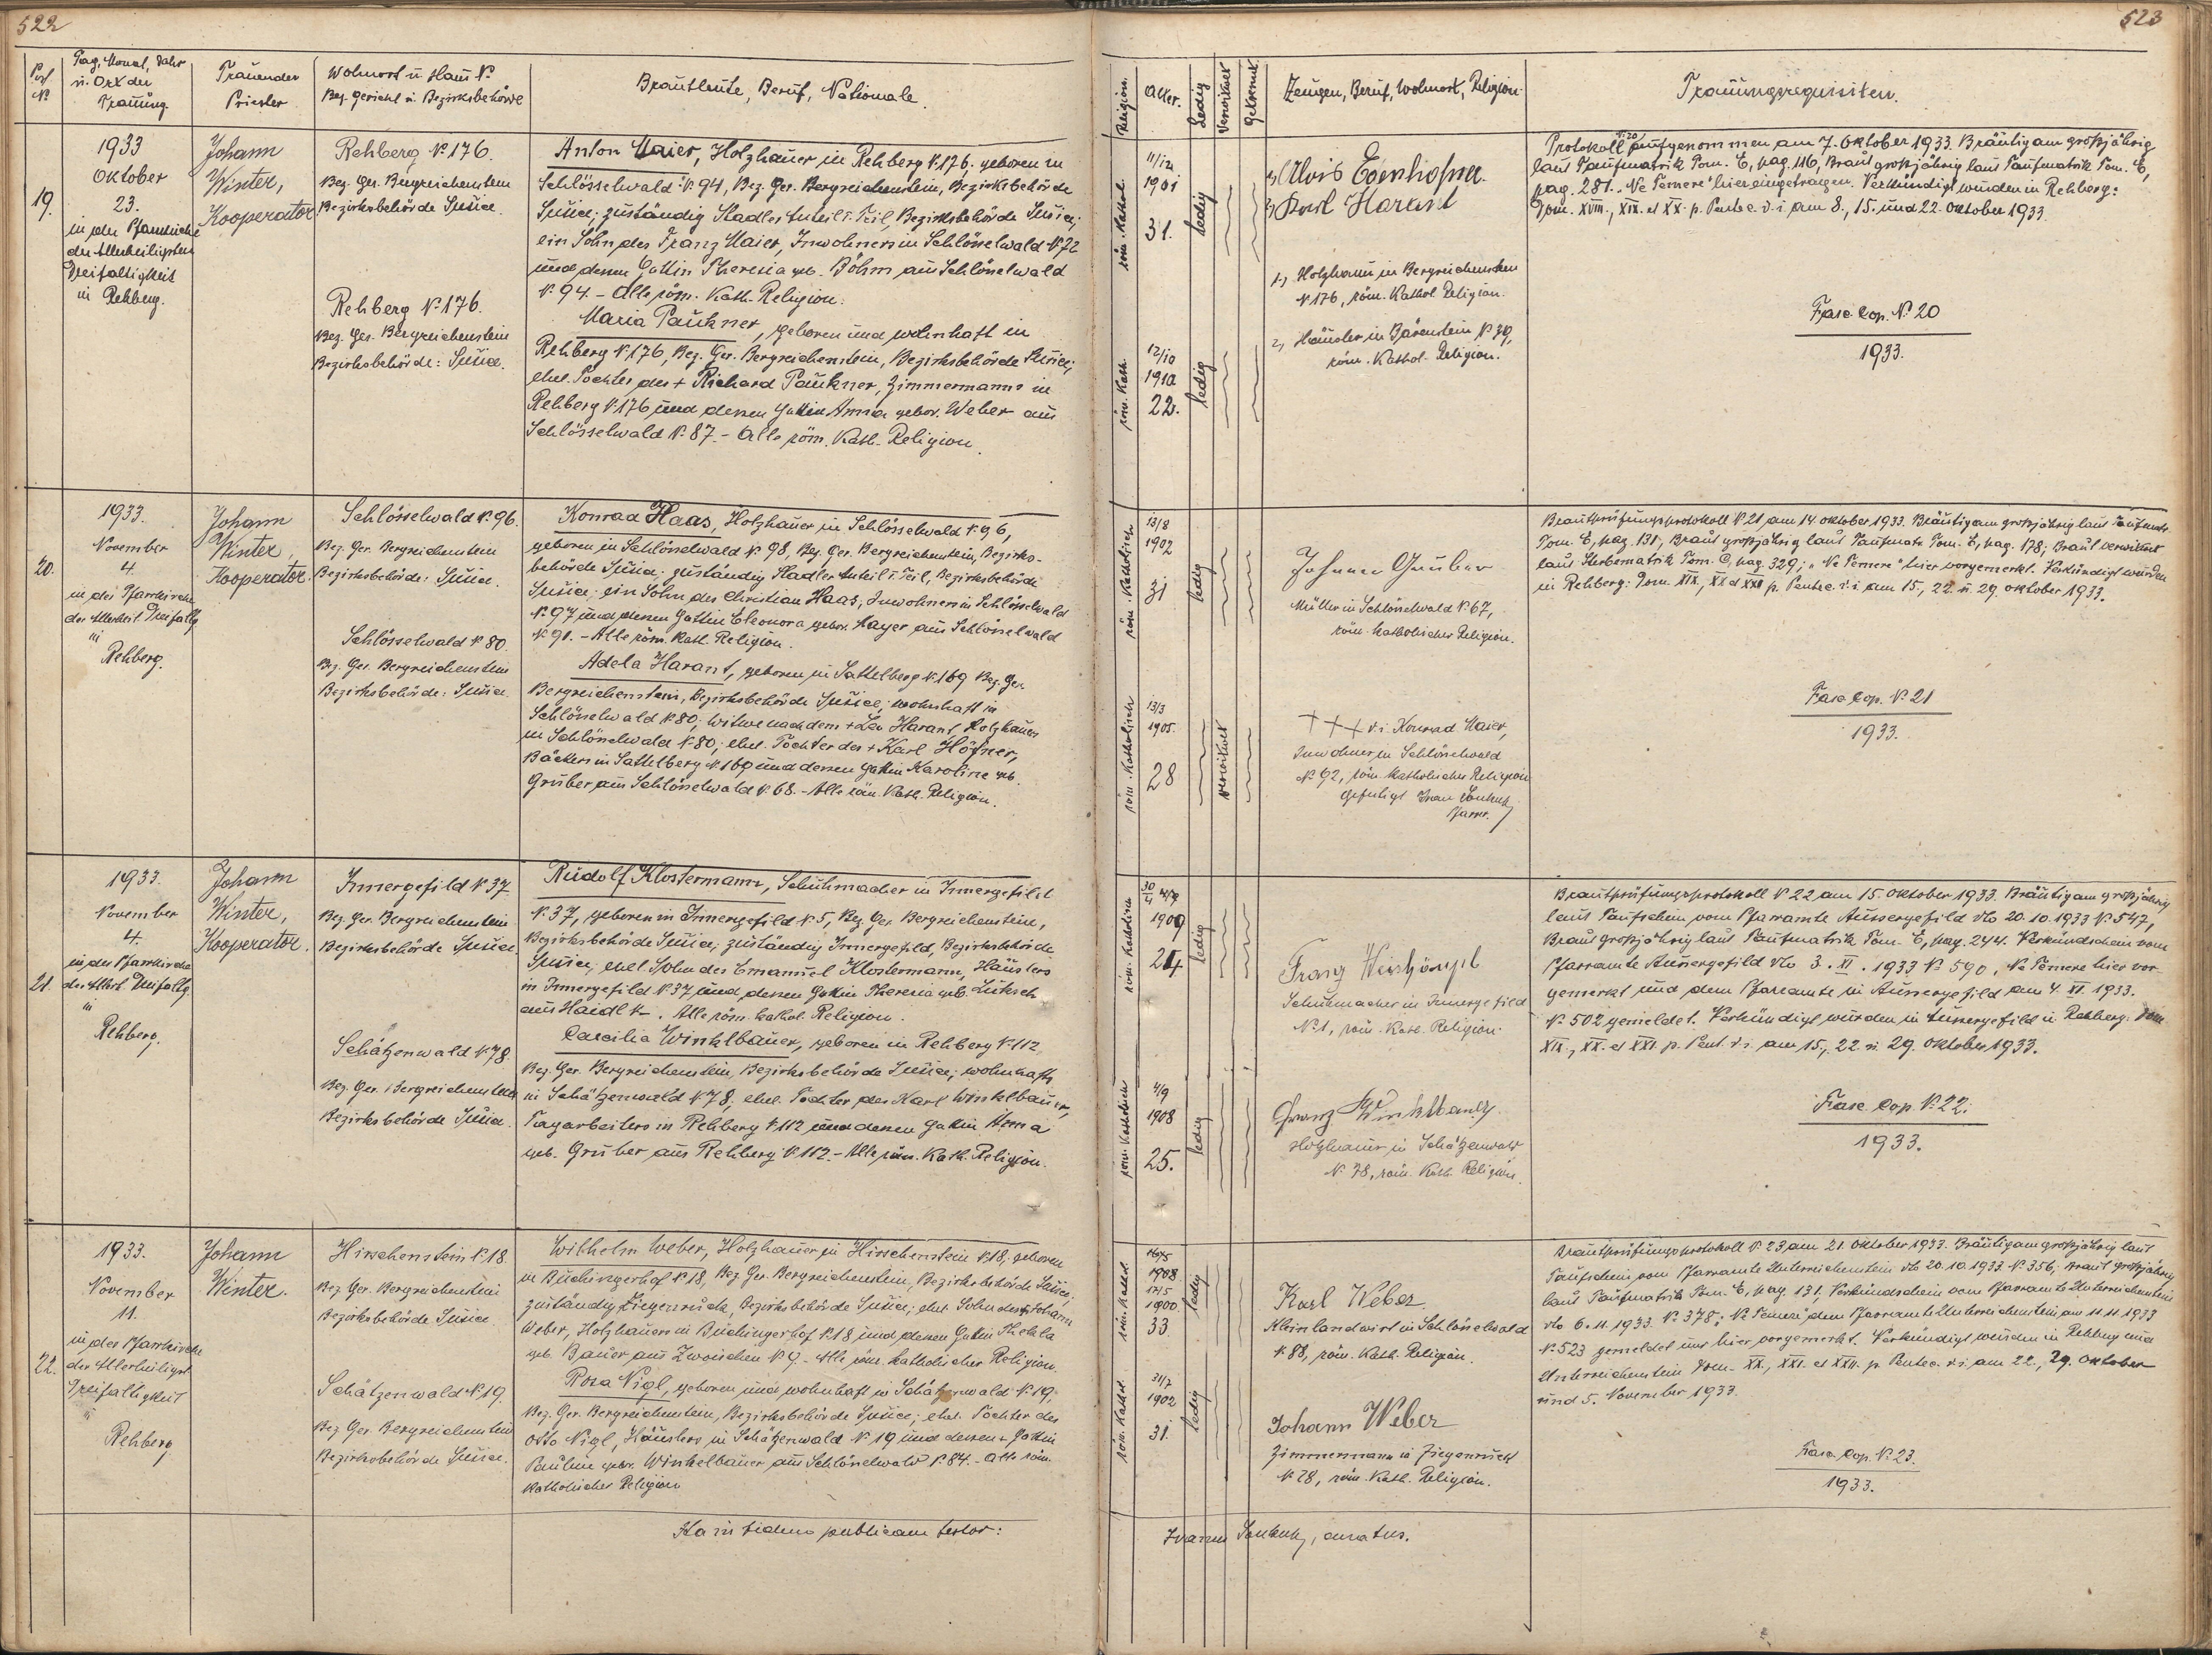 522
Post N.
Tag, Monat, Jahr
u. Ort der
Trauung.
Trauender
Priester
Wohnort u. Haus N.
Bez. Gericht u. Bezirksbehörde
Brautleute, Beruf, Nationale.
19.
1933
Oktober
23.
in der Pfarrkirche
der Allerheiligsten
Dreifaltigkeit
in Rehberg.
Johann
Winter,
Kooperator
Rehberg N. 176.
Bez. Ger. Bergreichenstein
Bezirksbehörde Sušice.
Rehberg N. 176.
Bez. Ger. Bergreichenstein
Bezirksbehörde: Sušice.
Anton Maier, Holzhauer in Rehberg N. 176, geboren in
Schlösselwald N. 94, Bez. Ger. Bergreichenstein, Bezirksbehörde
Sušice; zuständig Stadler Anteil I. Teil, Bezirksbehörde Sušice;
ein Sohn des Franz Maier, Inwohners in Schlösselwald N. 72
und dessen Gattin Theresia geb. Böhm aus Schlösselwald
N. 94. - Alle röm. Kath. Religion.
Maria Paukner, geboren und wohnhaft in
Rehberg N. 176, Bez. Ger. Bergreichenstein, Bezirksbehörde Sušice;
ehel. Tochter des + Richard Paukner, Zimmermanns in
Rehberg N. 176 und dessen Gattin Anna gebor. Weber aus
Schlösselwald N. 87. - Alle röm. Kath. Religion.
20.
1933.
November
4.
in der Pfarrkirche
der Allerheil. Dreifaltg
in
Rehberg.
Johann
Winter,
Kooperator.
Schlösselwald N. 96.
Bez. Ger. Bergreichenstein
Bezirksbehörde: Sušice.
Schlösselwald N. 80.
Bez. Ger. Bergreichenstein
Bezirksbehörde: Sušice.
Konrad Haas, Holzhauer in Schlösselwald N. 96,
geboren in Schlösselwald N. 98, Bez. Ger. Bergreichenstein, Bezirks-
behörde Sušice; zuständig Stadler Anteil I. Teil, Bezirksbehörde
Sušice; ein Sohn des Christian Haas, Inwohners in Schlösselwald
N. 97 und dessen Gattin Eleonora gebor. Mayer aus Schlösselwald
N. 90. - Alle röm. Kath. Religion.
Adela Harant, geboren in Sattelberg N. 169 Bez. Ger.
Bergreichenstein, Bezirksbehörde Sušice; wohnhaft in
Schlösselwald N. 80; Witwe nach dem + Leo Harant, Holzhauer
in Schlösselwald N. 80; ehel. Tochter des + Karl Höfner,
Bäckers in Sattelberg N. 169 und dessen Gattin Karoline geb.
Gruber aus Schlösselwald N. 68. - Alle röm. Kath. Religion.
21.
1933.
November
4.
in der Pfarrkirche
der Allerh. Dreifaltg.
in
Rehberg.
Johann
Winter,
Kooperator.
Innergefild N. 37
Bez. Ger. Bergreichenstein
Bezirksbehörde Sušice.
Schätzenwald N. 78
Bez. Ger. Bergreichenstein
Bezirksbehörde Sušice.
Rudolf Klostermann, Schuhmacher in Innergefild
N. 37, geboren in Innergefild N. 5, Bez. Ger. Bergreichenstein,
Bezirksbehörde Sušice; zuständig Innergefild, Bezirksbehörde
Sušice, ehel. Sohn des Emanuel Klostermann, Häuslers
in Innergefild N. 37 und dessen Gattin Theresia geb. Luksch
aus Haidl. Alle röm. kathol. Religion.
Caecilia Winklbauer, geboren in Rehberg N. 112
Bez. Ger. Bergreichenstein, Bezirksbehörde Sušice; wohnhaft
in Schätzenwald N. 78; ehel. Tochter des Karl Winklbauer,
Tagarbeiters in Rehberg N. 112 und dessen Gattin Anna
geb. Gruber aus Rehberg N. 112. - Alle röm. Kath. Religion.
22.
1933.
November
11.
in der Pfarrkirche
der Allerheiligst.
Dreifaltigkeit
in
Rehberg
Johann
Winter.
Hirschenstein N. 18
Bez. Ger. Bergreichenstein
Bezirksbehörde Sušice.
Schätzenwald N. 19.
Bez. Ger. Bergreichenstein
Bezirksbehörde Sušice.
Wilhelm Weber, Holzhauer in Hirschenstein N. 18, geboren
in Buchingerhof N. 18, Bez. Ger. Bergreichenstein, Bezirksbehörde Sušice;
zuständig Ziegenruck, Bezirksbehörde Sušice; ehel. Sohn des + Johann
Weber, Holzhauers in Buchingerhof N. 18 und dessen Gattin Thekla
geb. Bauer aus Zwoischen N. 9. - Alle röm. katholischer Religion.
Rosa Nigl, geboren und wohnhaft in Schätzenwald N. 19,
Bez. Ger. Bergreichenstein, Bezirksbehörde Sušice; ehel. Tochter des
Otto Nigl, Häuslers in Schätzenwald N. 19 und dessen + Gattin
Pauline gebor. Winkelbauer aus Schlösselwald N. 84. - Alle röm.
katholischer Religion
Ita in fidem publicam testor:
523
Religion.
Alter.
Ledig
Verwitwet
Getrennt
Zeugen, Beruf, Wohnort, Religion
Trauungsrequisiten.
röm. Kathol.
11/12
1901
31.
ledig
röm. Kath.
12/10
1910
22.
ledig
1) Alois Eggenhofner.
2) Karl Harant
1., Holzhauer in Bergreichenstein
N. 176, röm. Kathol. Religion.
2., Häusler in Bärenstein N. 39,
röm. Kathol. Religion.
Protokoll N. 20 aufgenommen am 7. Oktober 1933. Bräutigam großjährig
laut Taufmatrik Tom. E, pag. 116, Braut großjährig laut Taufmatrik Tom. E,
pag. 281. "Ne Temere" hier eingetragen. Verkündigt wurden in Rehberg:
Dom. XVIII., XIX. et XX. p. Pentec. d. i. am 8., 15. und 22. Oktober 1933.
Fasc. Cop. N. 20
1933.
röm. Katholisch
13/8
1902
31
ledig
röm. Katholisch
13/3
1905.
28
verwitwet
Johann Gruber
Müller in Schlösselwald N. 67,
röm. katholischer Religion.
+++ d. i. Konrad Maier,
Inwohner in Schlösselwald
N. 92, röm. katholischer Religion
gefertigt Ivan
Pfarrer.
Brautprüfungsprotokoll N. 21 am 14. Oktober 1933. Bräutigam großjährig laut Taufmatr.
Tom. E, pag. 131, Braut großjährig laut Taufmatr. Tom. E, pag. 178; Braut verwitwet
laut Sterbematrik Tom. C, pag. 329; "Ne Temere" hier vorgemerkt. Verkündigt wurden
in Rehberg: Dom. XIX., XX. et XXI. p. Pentec. d. i. am 15., 22. u. 29. Oktober 1933.
Fasc. Cop. N. 21
1933.
röm. Katholisch
1909
24
ledig
röm. Katholisch
4/9
1908
25.
ledig
Franz Weishäupl
Schuhmacher in Innergefild
N. 1, röm. Kath. Religion.
Franz Winklbauer.
Holzhauer in Schätzenwald
N. 78, röm. Kath. Religion.
Brautprüfungsprotokoll N. 22 am 15. Oktober 1933. Bräutigam großjährig
laut Taufschein vom Pfarramte Aussergefild dto 20.10.1933 N. 547,
Braut großjährig laut Taufmatrik Tom. E, pag. 244. Verkündschein vom
Pfarramte Aussergefild dto 3. XI. 1933 N. 590. Ne Temere hier vor-
gemerkt und dem Pfarramte in Aussergefild am 4. XI. 1933.
N. 502 gemeldet. Verkündigt wurden in Aussergefild u. Rehberg: Dom
XIX., XX. et XXI. p. Pent. d. i. am 15., 22. u. 29. Oktober 1933.
Fasc. Cop. N. 22.
1933.
röm. Kathol.
1908
17/5
1900
33
ledig
röm. Kathol.
31/7
1902
31.
ledig
Karl Weber.
Kleinlandwirt in Schlösselwald
N. 88, röm. Kath. Religion.
Johann Weber
Zimmermann in Ziegenruck
N. 28, röm. Kath. Religion.
Brautprüfungsprotokoll N. 23 am 21. Oktober 1933. Bräutigam großjährig laut
Taufschein vom Pfarramte Unterreichenstein dto 20.10.1933 N. 356, Braut großjährig
laut Taufmatrik Tom. E, pag. 131, Verkündschein vom Pfarramte Unterreichenstein
dto 6.11.1933 N. 378; "Ne Temere" dem Pfarramte Unterreichenstein am 11.11.1933
N. 523 gemeldet und hier vorgemerkt. Verkündigt wurden in Rehberg und
Unterreichenstein Dom. XX., XXI. et XXII. p. Pentec. d. i. am 22., 29. Oktober
und 5. November 1933.
Fasc. Cop. N. 23.
1933.
curatus.